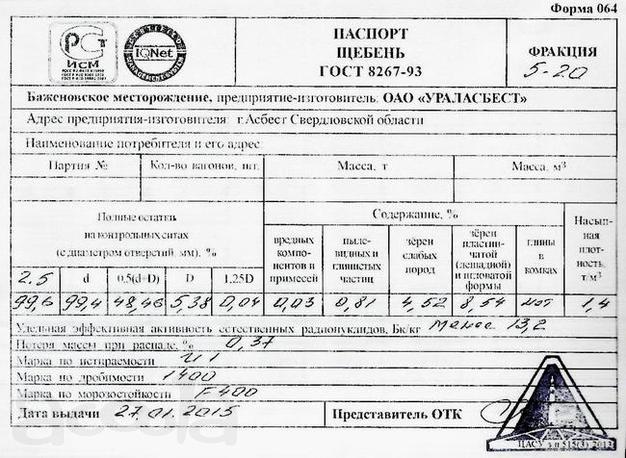 Форма 064
РСТ
ИСМ
IQNet
ПАСПОРТ
ЩЕБЕНЬ
ГОСТ 8267-93
ФРАКЦИЯ
5-20
Баженовское месторождение, предприятие-изготовитель: ОАО «УРАЛАСБЕСТ»
Адрес предприятия-изготовителя г.Асбест Свердловской области
Наименование потребителя и его адрес
Партия № Кол-во вагонов, шт. Масса, т Масса, м³
Полные остатки
на контрольных ситах
(с диаметром отверстий, мм), %
2.5 d 0,5(d+D) D 1,25D
Содержание, %
вредных
компо-
нентов и
примесей
пыле-
видных и
глинистых
частиц
зёрен
слабых
пород
зёрен
пластин-
чатой
(лещадной)
и игловатой
формы
глины
в
комках
Насып-
ная
плот-
ность,
т/м³
99,6 99,4 48,46 5,38 0,04 0,03 0,81 4,52 8,54 нет 1,4
Удельная эффективная активность естественных радионуклидов, Бк/кг менее 13,2
Потеря массы при распаде, % 0,37
Марка по истираемости И1
Марка по дробимости 1400
Марка по морозостойкости F400
Дата выдачи 27.01.2015 Представитель ОТК